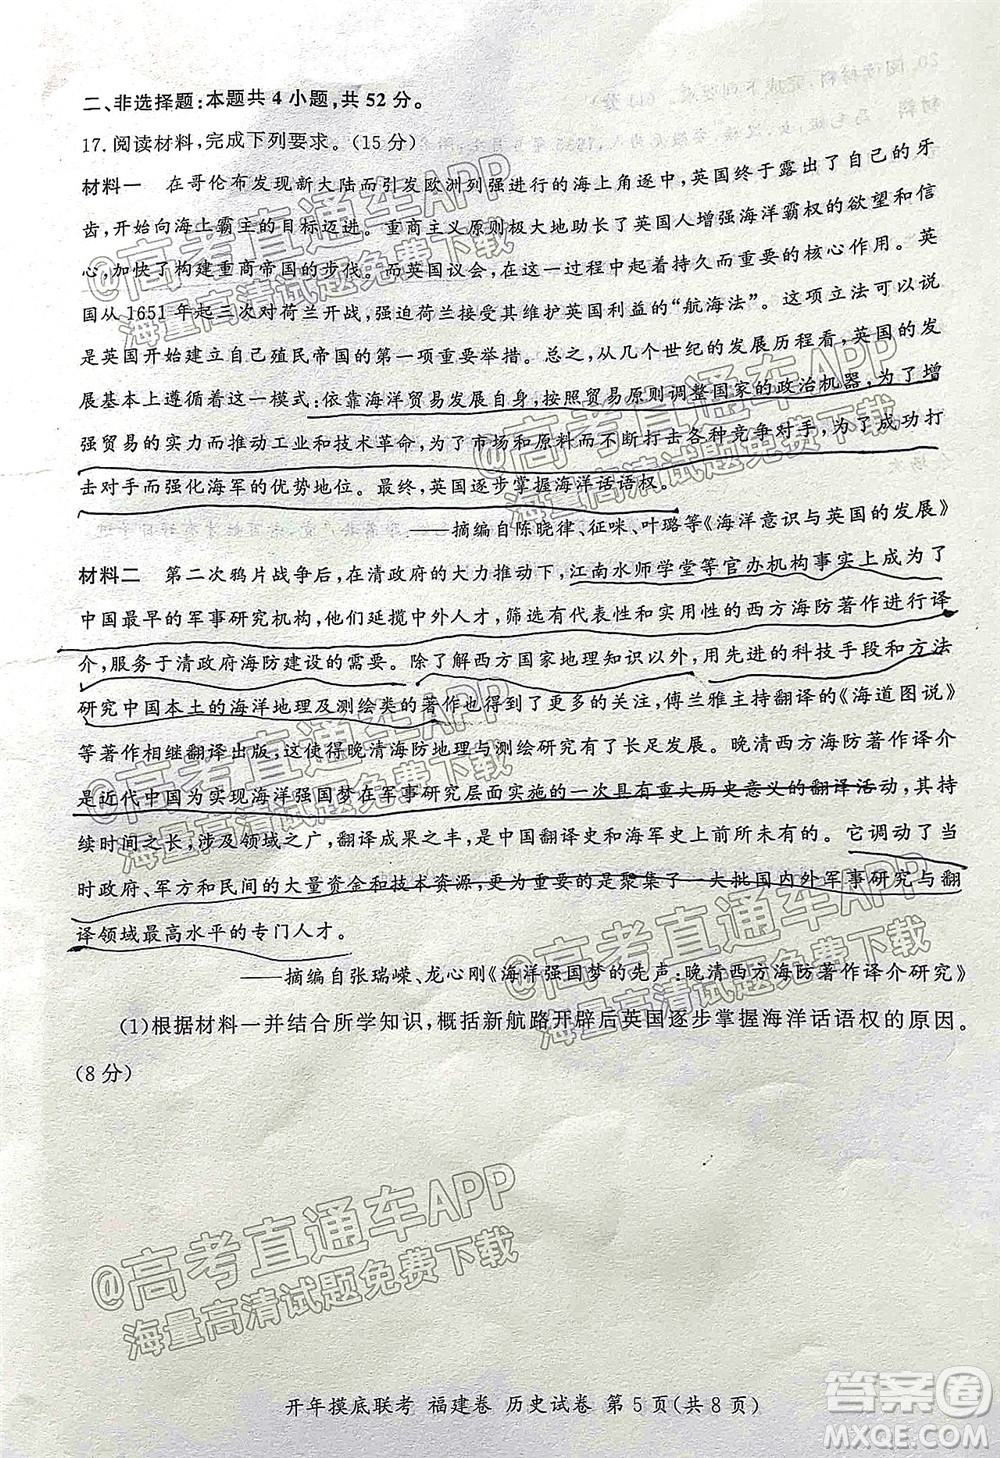 二、非选择题:本题共 4 小题,共 52 分。
17.阅读材料,完成下列要求。(15 分)
材料一 在哥伦布发现新大陆而引发欧洲列强进行的海上角逐中,英国终于露出了自己的牙
齿,开始向海上霸主的目标迈进。重商主义原则极大地助长了英国人增强海洋霸权的欲望和信
心,加快了构建重商帝国的步伐。而英国议会,在这一过程中,发挥着持久而重要的核心作用。英
国从 1651 年起三次对荷兰开战,强迫荷兰接受其维护英国利益的“航海法”。这项立法可以说
是英国开始建立自己殖民帝国的第一项重要举措。总之,从几个世纪的发展历程看,英国的发
展基本上遵循着这一模式:依靠海洋贸易发展自身,按照贸易原则调整国家的政治机器,为了增
强贸易的实力而推动工业和技术革命,为了市场和原料而不断打击各种竞争对手,为了成功打
击对手而强化海军的优势地位。最终,英国逐步掌握海洋话语权。
——摘编自陈晓律、征咪、叶璐等《海洋意识与英国的发展》
材料二 第二次鸦片战争后,在清政府的大力推动下,江南水师学堂等官办机构事实上成为了
中国最早的军事研究机构,他们延揽中外人才,筛选有代表性和实用性的西方海防著作进行译
介,服务于清政府海防建设的需要。除了解西方国家地理知识以外,用先进的科技手段和方法
研究中国本土的海洋地理及测绘类的著作也得到了更多的关注,傅兰雅主持翻译的《海道图说》
等著作相继翻译出版,这使得晚清海防地理与测绘研究有了长足发展。晚清西方海防著作译介
是近代中国为实现海洋强国梦在军事研究层面实施的一次具有重大历史意义的翻译活动,其持
续时间之长,涉及领域之广,翻译成果之丰,是中国翻译史和海军史上前所未有的。它调动了当
时政府、军方和民间的大量资金和技术资源,更为重要的是聚集了一大批国内外军事研究与翻
译领域最高水平的专门人才。
——摘编自张瑞嵘、龙心刚《海洋强国梦的先声:晚清西方海防著作译介研究》
(1)根据材料一并结合所学知识,概括新航路开辟后英国逐步掌握海洋话语权的原因。
(8 分)
@高考直通车APP
海量高清试题免费下载
@高考直通车APP
海量高清试题免费下载
@高考直通车APP
海量高清试题免费下载
@高考直通车APP
海量高清试题免费下载
@高考直通车APP
海量高清试题免费下载
@高考直通车APP
海量高清试题免费下载
开年摸底联考 福建卷 历史试卷 第 5 页(共 8 页)
答案圈
MXQE.COM